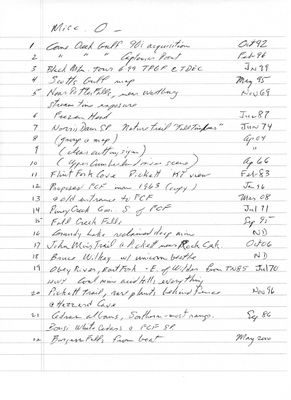 Misc. O -
1 Gulf 90i acquisition Oct 92
2 " " " Point Feb 98
3 Black Mtn. tour 699 TPGF & TDEC Jn 99
4 Scott's Gulf map May 95
5 Near Falls, near Nov 69
stream time exposure
6 Hood Jun 87
7 Norris Dam SP Nature Trail Jun 74
8 (group o map) Ap 04
9 ( sign) "
10 (Upper Cumberland river scene) Ap 66
11 Flint Fork Cove Pickett KY view Feb 83
12 Proposed PCF map 1963 (copy) Jan 96
13 old entrance to PCF Mar 08
14 Piney Creek Gen. S of PCF Jul 91
15 Fall Creek Falls Sep 95
16 Grundy Lake reclaimed deep mine ND
17 John Muir Trail @ Pickett near Rock Oak Oct 06
18 Bruce Wilkey w/ unicorn beetle ND
19 Obey River, East Fork - E. of Wilder from TN 85 Jul 70
Coal mine acid kills everything
20 Pickett Trail, rare plants behind fence Nov 96
@ Hazard Cave
21 Cedars at Cane, Southern-most range. Sep 86
White Cedars @ PCF SP
22 Burgess Falls from boat May 2000